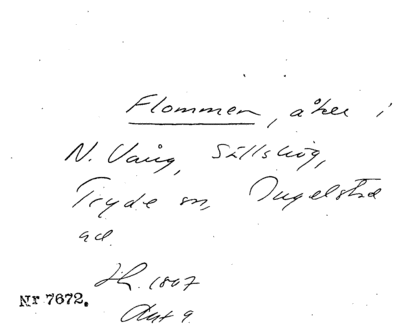 Flommen, åker i
N. Vång, Sällshög,
Tryde sn, Ingelstad
hd.
1807
Akt 9
Nr 7672.